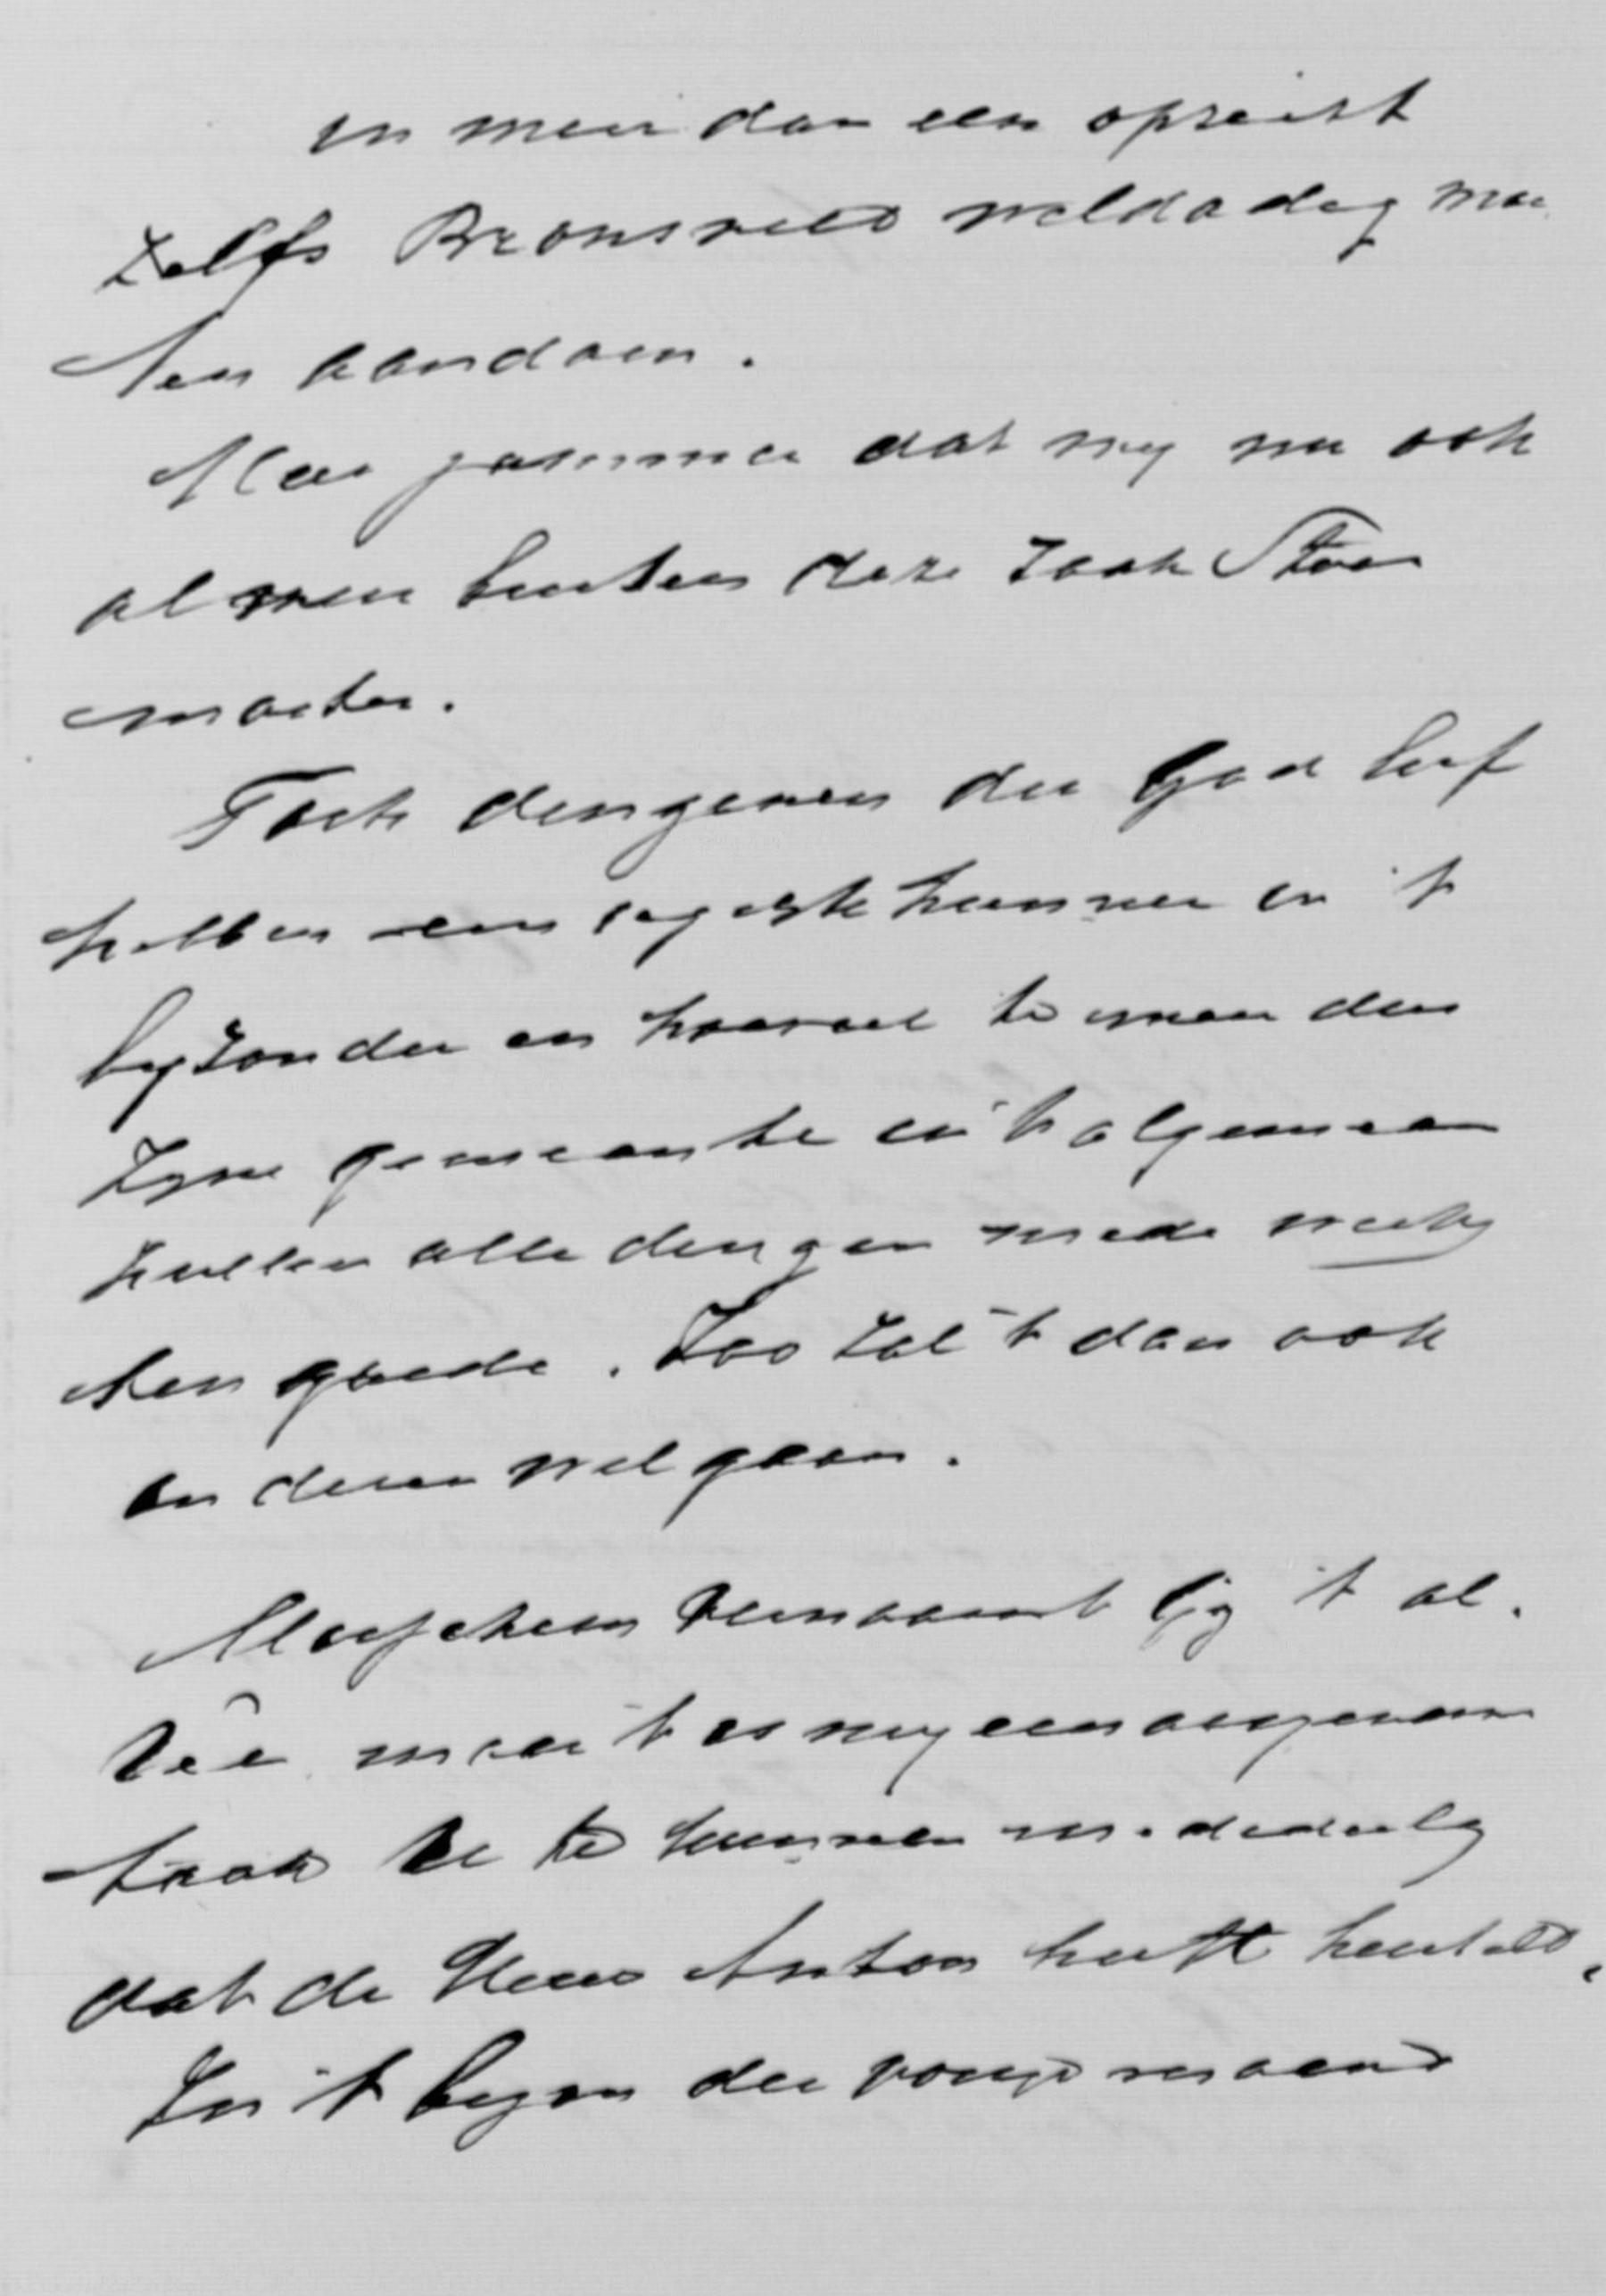 in meer dan een opzicht
zelfs Bronsveld weldadig moe
ten aandoen.
Maar jammer dat wij nu ook
al weer buiten deze zaak staan
moeten.
Toch dengenen die God lief
hebben een iegelijk hunner in 't
bijzonder en hunner te zamen den
Zijne gemeente in 't algemeen
zullen alle dingen mede werken
ten goede. Zoo zal 't dan ook
in dezen wel gaan.
Misschien vernaamt Gij 't al.
Dée maar 't is mij een aangename
taak U te kunnen mededeelen
dat de Heer Anton heeft hersteld.
In 't begin der vorige maand